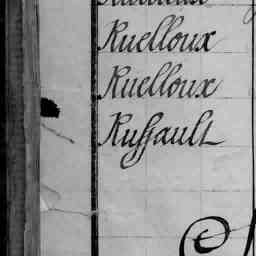 Ruelloux
Ruelloux
Ruffault